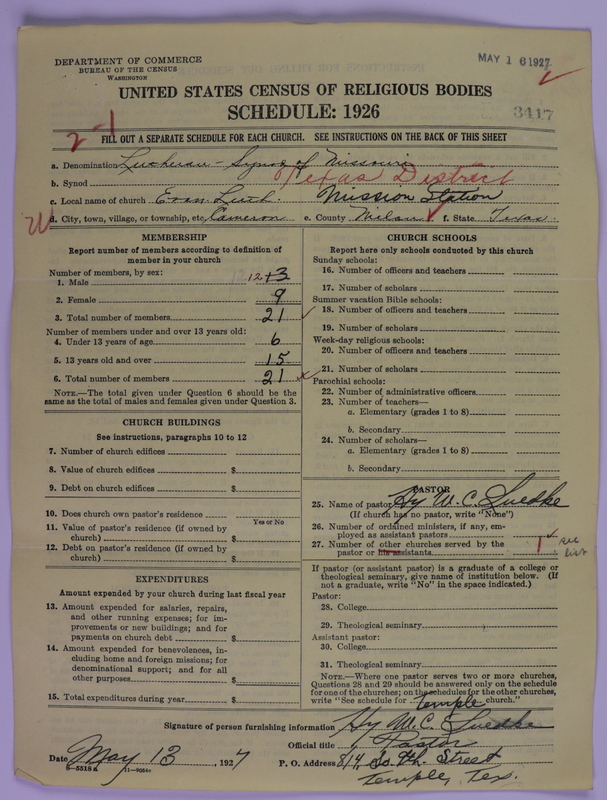 DEPARTMENT OF COMMERCE
BUREAU OF THE CENSUS
WASHINGTON
MAY 16 1927
UNITED STATES CENSUS OF RELIGIOUS BODIES
SCHEDULE: 1926
3417
2-1
FILL OUT A SEPARATE SCHEDULE FOR EACH CHURCH. SEE INSTRUCTIONS ON THE BACK OF THIS SHEET
a. Denomination Lutheran - Synod of Missouri
b. Synod Texas District
c. Local name of church Evan. Luth. Mission Station
d. City, town, village, or township, etc. Cameron e. County Milam f. State Texas
MEMBERSHIP
Report number of members according to definition of
member in your church
Number of members, by sex:
1. Male 12
2. Female 9
3. Total number of members 21
Number of members under and over 13 years old:
4. Under 13 years of age 6
5. 13 years old and over 15
6. Total number of members 21
NOTE.—The total given under Question 6 should be the
same as the total of males and females given under Question 3.
CHURCH BUILDINGS
See instructions, paragraphs 10 to 12
7. Number of church edifices
8. Value of church edifices $
9. Debt on church edifices $
10. Does church own pastor's residence
Yes or No
11. Value of pastor's residence (if owned by
church) $
12. Debt on pastor's residence (if owned by
church) $
EXPENDITURES
Amount expended by your church during last fiscal year
13. Amount expended for salaries, repairs,
and other running expenses; for im-
provements or new buildings; and for
payments on church debt $
14. Amount expended for benevolences, in-
cluding home and foreign missions; for
denominational support; and for all
other purposes $
15. Total expenditures during year $
CHURCH SCHOOLS
Report here only schools conducted by this church
Sunday schools:
16. Number of officers and teachers
17. Number of scholars
Summer vacation Bible schools:
18. Number of officers and teachers
19. Number of scholars
Week-day religious schools:
20. Number of officers and teachers
21. Number of scholars
Parochial schools:
22. Number of administrative officers
23. Number of teachers—
a. Elementary (grades 1 to 8)
b. Secondary
24. Number of scholars—
a. Elementary (grades 1 to 8)
b. Secondary
PASTOR
25. Name of pastor Hy. W. C. Luedke
(If church has no pastor, write "None")
26. Number of ordained ministers, if any, em-
ployed as assistant pastors
27. Number of other churches served by the
pastor or his assistants 1 see list
If pastor (or assistant pastor) is a graduate of a college or
theological seminary, give name of institution below. (If
not a graduate, write "No" in the space indicated.)
Pastor:
28. College
29. Theological seminary
Assistant pastor:
30. College
31. Theological seminary
NOTE.—Where one pastor serves two or more churches,
Questions 28 and 29 should be answered only on the schedule
for one of the churches; on the schedules for the other churches,
write "See schedule for Temple church."
Signature of person furnishing information Hy. W. C. Luedke
Official title Pastor
Date May 13, 1927 P. O. Address 814 So. 9th. Street
Temple, Tex.
8-5518 a 11-9054